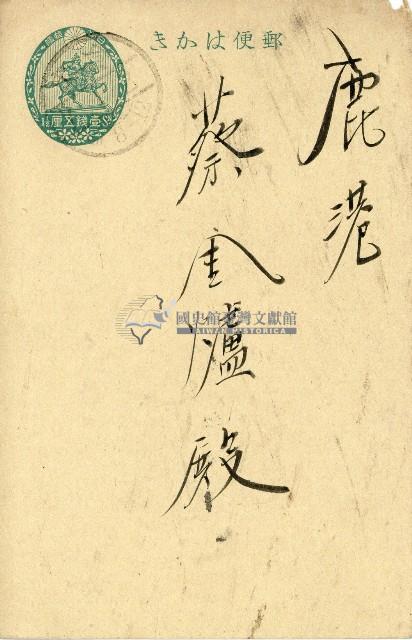 きかは便郵
鹿港
蔡金爐殿
壹錢五厘
國史館臺灣文獻館
TAIWAN HISTORICA